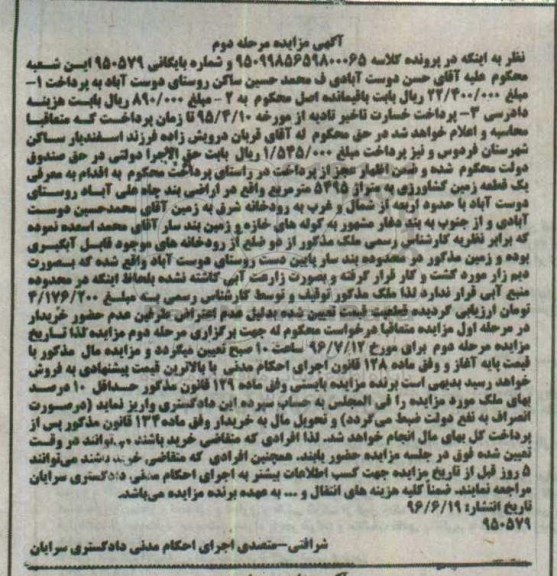 آگهی مزایده مرحله دوم
نظر به اینکه در پرونده کلاسه ۹۵۰۹۹۸۵۶۵۹۸۰۰۰۶۵ و شماره بایگانی ۹۵۰۵۷۹ این شعبه
محکوم علیه آقای حسن دوست آبادی ف محمد حسین ساکن روستای دوست آباد به پرداخت ۱-
مبلغ ۲۲/۴۰۰/۰۰۰ ریال بابت باقیمانده اصل محکوم به ۲ - مبلغ ۸۹۰/۰۰۰ ریال بابت هزینه
دادرسی ۳- پرداخت خسارت تاخیر تادیه از مورخه ۹۵/۴/۱۰ تا زمان پرداخت که متعاقبا
محاسبه و اعلام خواهد شد در حق محکوم له آقای قربان درویش زاده فرزند اسفندیار ساکن
شهرستان فردوس و نیز پرداخت مبلغ ۱/۵۴۵/۰۰۰ ریال بابت حق الاجرا دولتی در حق صندوق
دولت محکوم شده و ضمن اظهار عجز از پرداخت در راستای پرداخت محکوم به اقدام به معرفی
یک قطعه زمین کشاورزی به متراژ ۵۴۹۵ مترمربع واقع در اراضی بند چاه علی آباد روستای
دوست آباد با حدود اربعه از شمال و غرب به رودخانه شرق به زمین آقای محمدحسین دوست
آبادی و از جنوب به بند دفار مشهور به گوله های خازه و زمین بند سار آقای محمد اسعده نموده
که برابر نظریه کارشناس رسمی ملک مذکور از دو ضلع از رودخانه های موجود قابل آبگیری
بوده و زمین مذکور در محدوده بند سار پایین دست روستای دوست آباد واقع شده که بصورت
دیم زار مورد کشت و کار قرار گرفته و بصورت زارعت آبی کاشته نشده بلحاظ اینکه در محدوده
منبع آبی قرار ندارد لذا ملک مذکور توقیف و توسط کارشناس رسمی به مبلغ ۳/۱۷۶/۲۰۰
تومان ارزیابی گردیده قطعیت قیمت تعیین شده بدلیل عدم اعتراض طرفین عدم حضور خریدار
در مرحله اول مزایده متعاقبا درخواست محکوم له جهت برگزاری مرحله دوم مزایده لذا تاریخ
مزایده مرحله دوم برای مورخ ۹۶/۷/۱۲ ساعت ۱۰ صبح تعیین میگردد و مزایده مال مذکور با
قیمت پایه آغاز و وفق ماده ۱۲۸ قانون اجرای احکام مدنی با بالاترین قیمت پیشنهادی به فروش
خواهد رسید بدیهی است برنده مزایده بایستی وفق ماده ۱۲۹ قانون مذکور حداقل ۱۰ درصد
بهای ملک مورد مزایده را فی المجلس به حساب سپرده این دادگستری واریز نماید (درصورت
انصراف به نفع دولت ضبط می‌گردد) و تحویل مال به خریدار وفق ماده ۱۳۲ قانون مذکور پس از
پرداخت کل بهای مال انجام خواهد شد. لذا افرادی که متقاضی خرید باشند می‌توانند در وقت
تعیین شده فوق در جلسه مزایده حضور یابند. همچنین افرادی که متقاضی خرید باشند می‌توانند
۵ روز قبل از تاریخ مزایده جهت کسب اطلاعات بیشتر به اجرای احکام مدنی دادگستری سرایان
مراجعه نمایند. ضمناً کلیه هزینه های انتقال و ... به عهده برنده مزایده می‌باشد.
تاریخ انتشار: ۹۶/۶/۱۹
۹۵۰۵۷۹
شرافتی-متصدی اجرای احکام مدنی دادگستری سرایان